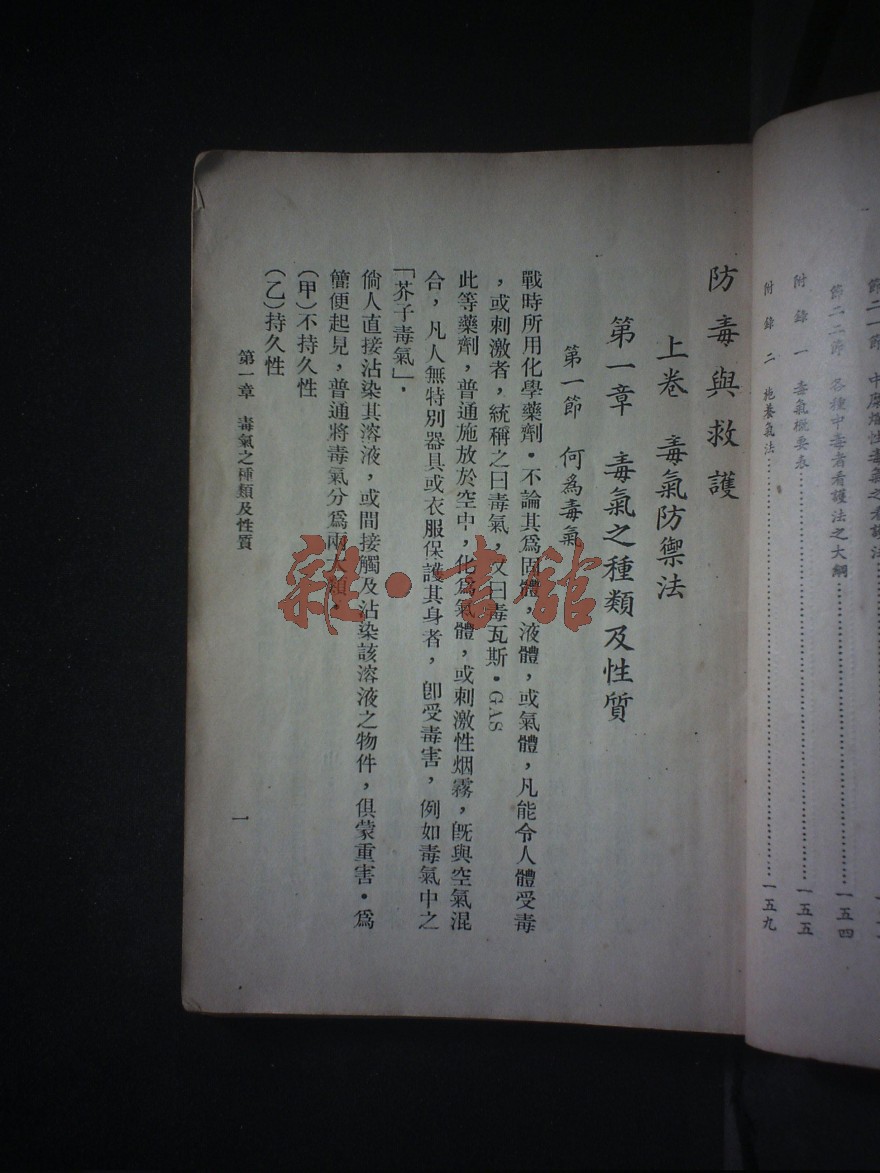 節二一節　中糜爛性毒氣之看護法
節二二節　各種中毒者看護法之大綱……一五四
附錄一　毒氣概要表……一五五
附錄二　施養氣法……一五九
防毒與救護
上卷　毒氣防禦法
第一章　毒氣之種類及性質
第一節　何爲毒氣
戰時所用化學藥劑・不論其爲固體，液體，或氣體，凡能令人體受毒
，或刺激者，統稱之曰毒氣，又曰毒瓦斯・GAS
此等藥劑，普通施放於空中，化爲氣體，或刺激性烟霧，旣與空氣混
合，凡人無特別器具或衣服保護其身者，卽受毒害，例如毒氣中之
「芥子毒氣」・
倘人直接沾染其溶液，或間接觸及沾染該溶液之物件，俱蒙重害・爲
簡便起見，普通將毒氣分爲兩大類・
（甲）不持久性
（乙）持久性
第一章　毒氣之種類及性質
一
雜・書館